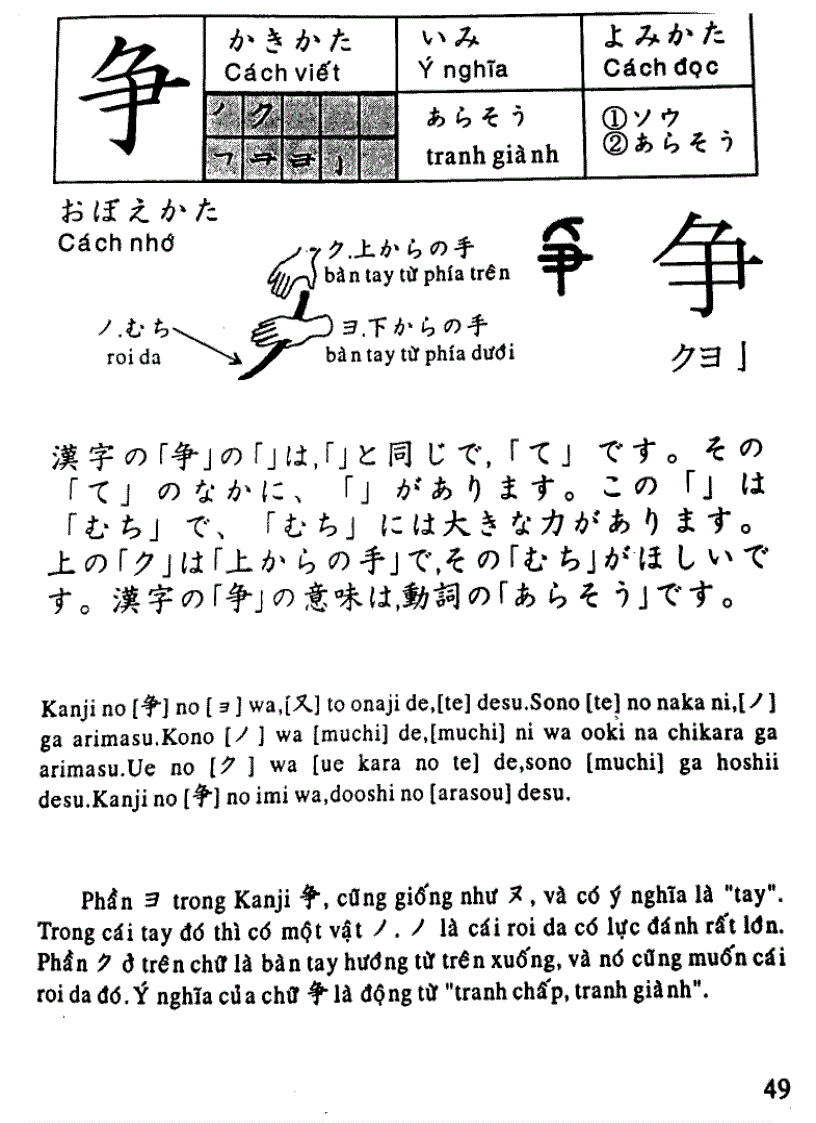 争
かきかた
Cách viết
いみ
Ý nghĩa
よみかた
Cách đọc
ノ ク
あらそう
tranh giành
①ソウ
②あらそう
おぼえかた
Cách nhớ
ク.上からの手
bàn tay từ phía trên
ノ.むち
roi da
ヨ.下からの手
bàn tay từ phía dưới
争
クヨ亅
漢字の「争」の「」は,「」と同じで,「て」です。その
「て」のなかに、「」があります。この「」は
「むち」で、「むち」には大きな力があります。
上の「ク」は「上からの手」で,その「むち」がほしいで
す。漢字の「争」の意味は,動詞の「あらそう」です。
Kanji no [争] no [ヨ] wa,[又] to onaji de,[te] desu.Sono [te] no naka ni,[ノ]
ga arimasu.Kono [ノ] wa [muchi] de,[muchi] ni wa ooki na chikara ga
arimasu.Ue no [ク] wa [ue kara no te] de,sono [muchi] ga hoshii
desu.Kanji no [争] no imi wa,dooshi no [arasou] desu.
Phần ヨ trong Kanji 争, cũng giống như ヌ, và có ý nghĩa là "tay".
Trong cái tay đó thì có một vật ノ. ノ là cái roi da có lực đánh rất lớn.
Phần ク ở trên chữ là bàn tay hướng từ trên xuống, và nó cũng muốn cái
roi da đó. Ý nghĩa của chữ 争 là động từ "tranh chấp, tranh giành".
49